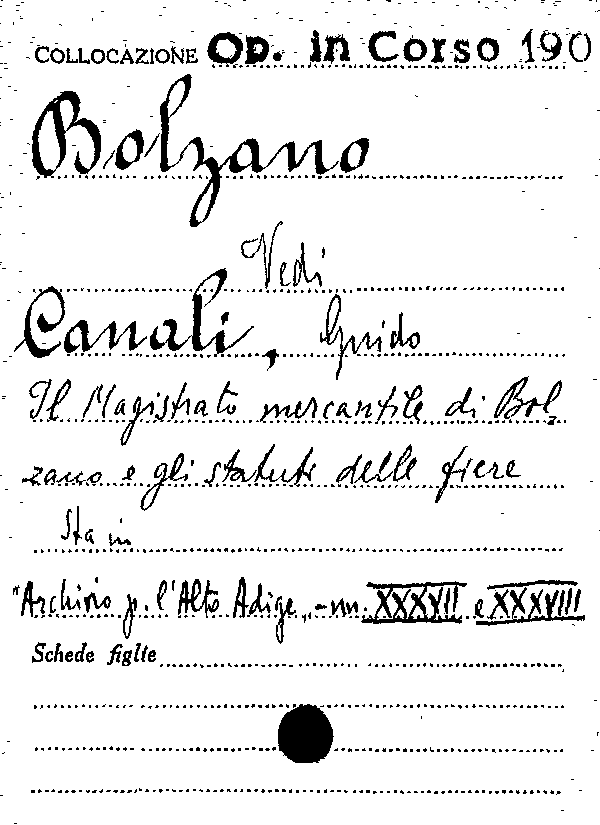 COLLOCAZIONE Op. in Corso 190
Bolzano
Vedi
Canali, Guido
Il Magistrato mercantile di Bol
zano e gli statuti delle fiere
Sta in
"Archivio p. l'Alto Adige„ - nn. XXXVII e XXXVIII
Schede figlie